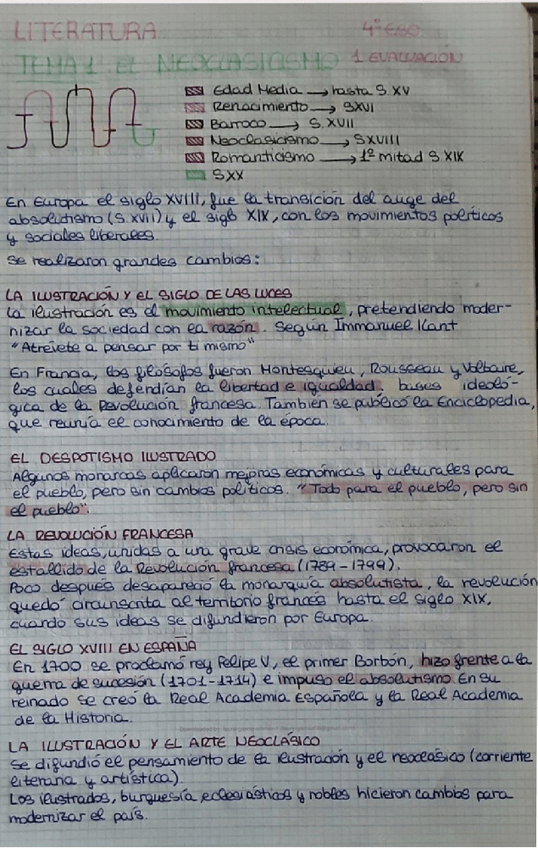 LITERATURA 4º ESO
TEMA 1: EL NEOCLASICISMO 1 EVALUACIÓN
Edad Media → hasta S. XV
Renacimiento → SXVI
Barroco → S. XVII
Neoclasicismo → SXVIII
Romanticismo → 1ª mitad S XIX
SXX
En Europa el siglo XVIII, fue la transición del auge del
absolutismo (S XVII) y el siglo XIX, con los movimientos políticos
y sociales liberales.
Se realizaron grandes cambios:
LA ILUSTRACIÓN Y EL SIGLO DE LAS LUCES
La ilustración es el movimiento intelectual, pretendiendo moder-
nizar la sociedad con la razón. Según Immanuel Kant
"Atrévete a pensar por ti mismo"
En Francia, los filósofos fueron Montesquieu, Rousseau y Voltaire,
los cuales defendían la libertad e igualdad, bases ideoló-
gica de la Revolución francesa. Tambien se publicó la Enciclopedia,
que reunía el conocimiento de la época.
EL DESPOTISMO ILUSTRADO
Algunos monarcas aplicaron mejoras económicas y culturales para
el pueblo, pero sin cambios políticos. "Todo para el pueblo, pero sin
el pueblo".
LA REVOLUCIÓN FRANCESA
Estas ideas, unidas a una grave crisis económica, provocaron el
estallido de la Revolución francesa (1789-1799).
Poco después desapareció la monarquía absolutista, la revolución
quedó circunscrita al territorio francés hasta el siglo XIX,
cuando sus ideas se difundieron por Europa.
EL SIGLO XVIII EN ESPAÑA
En 1700 se proclamó rey Felipe V, el primer Borbón, hizo frente a la
guerra de sucesión (1701-1714) e impuso el absolutismo. En su
reinado se creó la Real Academia Española y la Real Academia
de la Historia.
LA ILUSTRACIÓN Y EL ARTE NEOCLÁSICO
Se difundió el pensamiento de la ilustración y el neoclásico (corriente
literaria y artística).
Los ilustrados, burguesía eclesiásticos y nobles hicieron cambios para
modernizar el país.